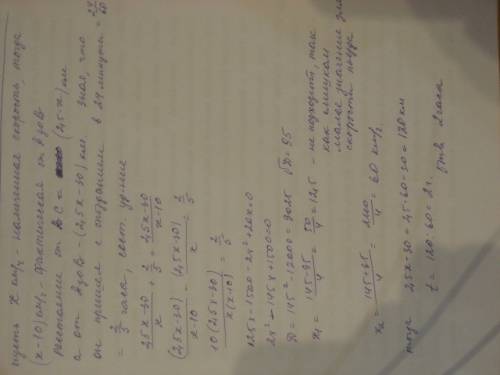 пусть x км/ч намеченная скорость, тогда
(x-10) км/ч - фактическая от A до B
расстояние от BC = (2,5-x) км
а от A до B - (2,5x-30) км. Зная, что
он пришел с опозданием в 24 минуты = 24/60
= 2/5 часа, сост. ур-ние
(2,5x-30)/x + 2/5 = (2,5x-30)/(x-10)
(2,5x-30)/(x-10) - (2,5x-30)/x = 2/5
10(2,5x-30)/(x(x-10)) = 2/5
125x-1500-2x²+20x=0
2x²-145x+1500=0
D=145²-12000=9025 √D=95
x₁ = (145-95)/4 = 50/4 = 12,5 - не подходит, так
как слишком
малое значение для
скорости поезда
x₂ = (145+95)/4 = 240/4 = 60 км/ч
тогда 2,5x-30=2,5·60-30=120 км
t = 120:60=2ч. Отв. 2 часа